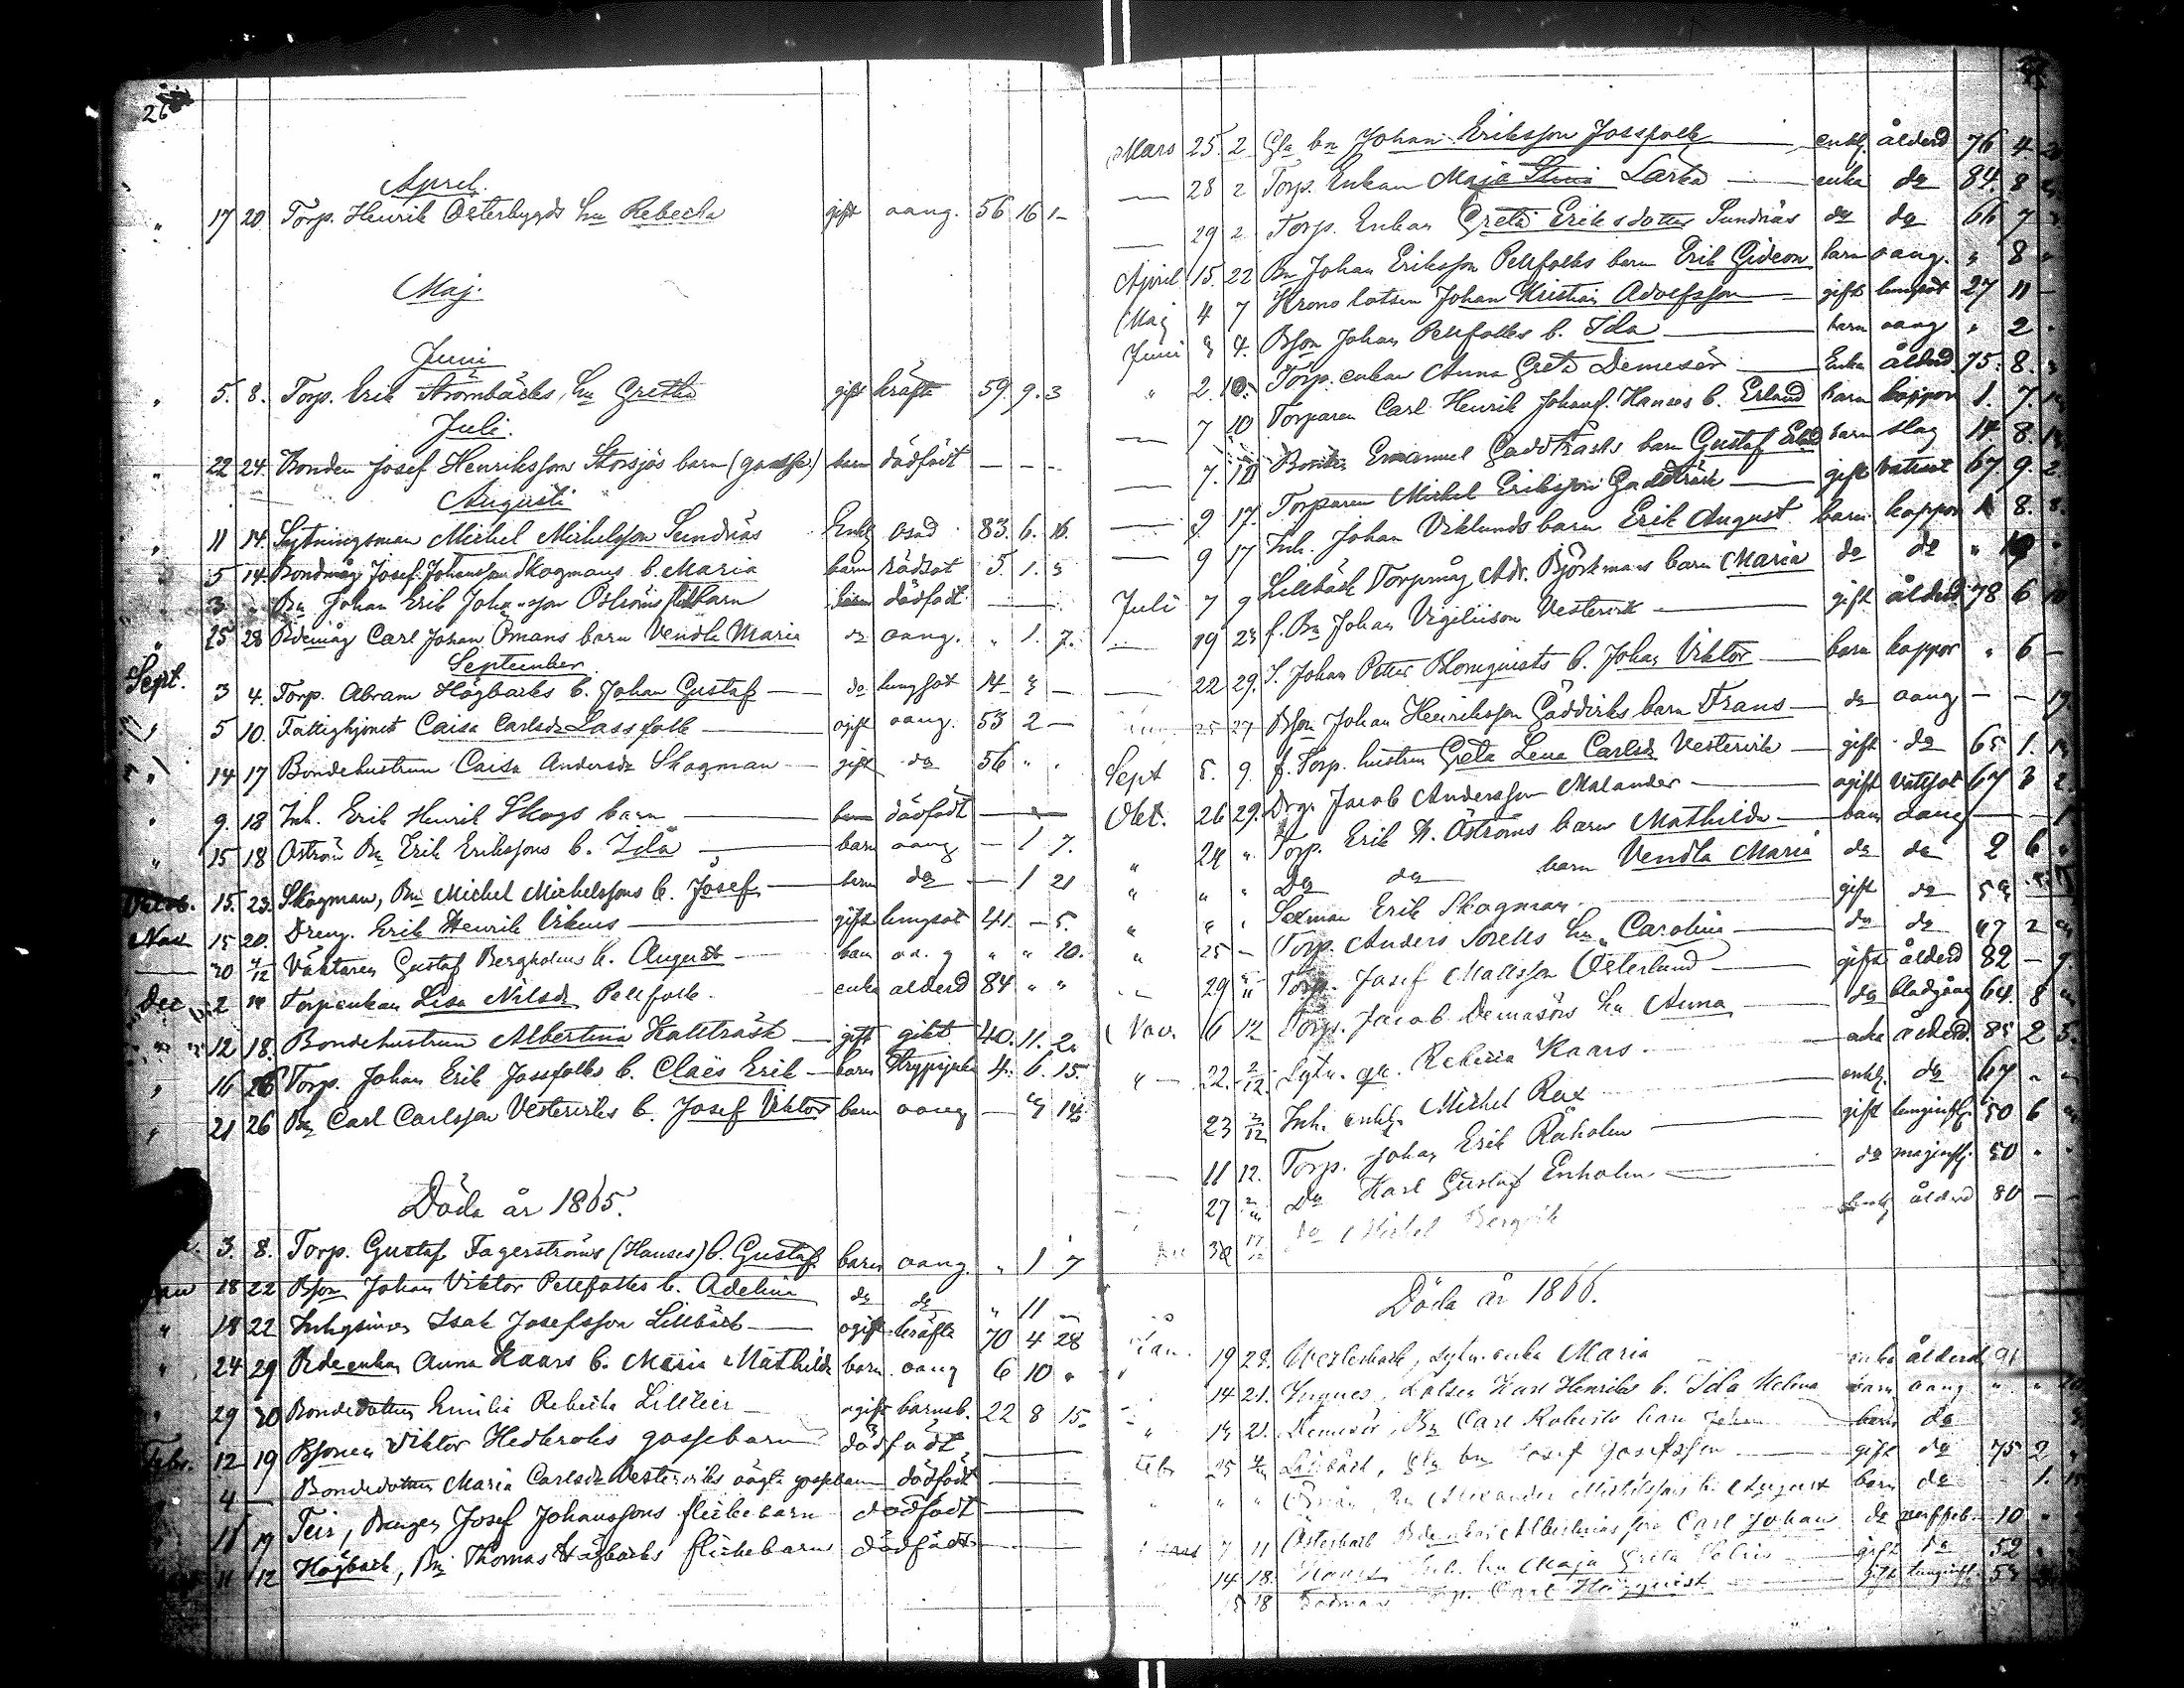 26
April.
" 17 20 Torp. Henrik Österbygds hu Rebecka gift oang. 56 16 1 –
Maj.
Juni
" 5. 8. Torp. Erik Strömbäcks, hu Greta gift kräfta 59. 9. 3
Juli.
" 22 24. Bonden Josef Henriksson Storsjös barn (gosse) barn dödfödt – – –
Augusti
" 11 14. Sytningsman Michel Michelsson Sundnäs Enkl. 83. 6. 16.
" 5 14. Bondmåg Josef Johansson Skogmans b. Maria barn rödsot 5. 1. 3
3 " Bn Johan Erik Johansson Öströms barn barn dödfödt – –
" 25 28 Bdemåg Carl Johan Ömans barn Vendla Maria do oang. " 1. 7.
September
Sept. 3 4. Torp. Abram Högbacks b. Johan Gustaf – do lungsot 14 3 –
" 5 10. Fattighjonet Caisa Carlsdr Lassfolk – ogift oang. 53 2 –
" 14 17 Bondehustrun Caisa Andersdr Skogman – gift do 56 " "
" 9. 18 Inh. Erik Henrik Skogs barn – barn dödfödt –
" 15 18 Öström Bn Erik Erikssons b. Ida – barn oang – 1 7.
Octob. 15. 23. Skogman, Bn Michel Michelssons b. Josef – barn do – 1 21
Nov 15 20. Dreng. Erik Henrik Vikens – gift lungsot 41. – 5.
– 30 4/12 Väktaren Gustaf Bergholms b. August – barn oang " " 20.
Dec 2 Torpenkan Lisa Nilsdr Pellfolk. – enka ålderd 84 " "
12 18. Bondehustrun Albertina Kallträsk – gift gikt 40. 11. 2.
" 16 26 Torp. Johan Erik Jossfolks b. Claës Erik – barn Strypsjuka 4. 6. 15.
" 21 26 Bn Carl Carlsson Vesterviks b. Josef Viktor barn oang – 3 14
Döda år 1865.
3. 8. Torp. Gustaf Fagerströms (Hanses) b. Gustaf barn oang. " 1 7
Jan 18 22 Bson Johan Viktor Pellfolks b. Adelina do do " 11 –
" 18 22 Inhysingen Isak Josefsson Lillbäck – ogift kräfta 70 4 28
" 24 29 Bdeenkan Anna Kaars b. Maria Mathilda barn oang 6 10 "
" 29 30 Bondedottren Emilia Rebecka Lillteir – ogift barnsb. 22 8 15.
Febr. 12 19 Bsonen Viktor Hedkroks gossebarn dödfödt –
4 – Bondedottren Maria Carlsdr Vesterviks oägta gossebarn dödfödt –
11 19 Teir, Drengen Josef Johanssons flickebarn dödfödt –
11 12 Högback, Bn Thomas Högbacks flickebarn dödfödt –
Mars 25. 2 Gla bn Johan Eriksson Jossfolk – enkl. ålderd 76 4.
– 28 2 Torp. Enkan Maja Stina Larka – enka do 84. 8
– 29 2 Torp. Enkan Greta Eriksdotter Sundnäs do do 66 7
April 15. 22 Bn Johan Eriksson Pellfolks barn Erik Gideon barn oang. " 8 "
Maj 4 7 Krono lotsen Johan Kristian Adolfsson – gift lungsot 27 11 –
Juni 3 4. Bson Johan Pellfolks b. Ida – barn oang " 2 "
" 2. 10. Torp. enkan Anna Greta Demesör – Enka ålderd. 75. 8.
– 7 10 Torparen Carl Henrik Johans. Hanses b. Erland barn koppor 1. 7.
– 7. Bonden Emanuel Gäddträsks barn Gustaf Erland barn slag 14 8.
– 9 17. Torparen Michel Eriksson Gäddträsk – gift 67 9. 2
– 9 17 Inh. Johan Viklunds barn Erik August barn koppor 8. 8.
Juli 7 9 Lillbäck Torpmåg Adr. Björkmans barn Maria do do "
19 23 f. Bn Johan Vigiliison Vestervik – gift ålderd 78 6
– 22 29. S. Johan Petter Blomqvists b. Johan Viktor – barn koppor " 6 –
25 27 Bson Johan Henriksson Gäddiks barn Frans – do oang – – 19
Sept 5. 9. f. Torp. hustrun Greta Lena Carlsdr Vestervik – gift do 65 1.
Okt. 26 29. Drgn Jacob Andersson Malander – ogift vattsot 67 3 2
" 24 " Torp. Erik H. Öströms barn Mathilda – barn oang – – 1
" " " Do do barn Vendla Maria do do 2 6 "
" " " Sexman Erik Skogman – gift do
" 25 – Torp. Anders Sorells hu Carolina – do do 47 2
29 Torp. Josef Mattsson Österlund – gift ålderd 82 – 9
Nov. 6 12 Torp. Jacob Demasörs hu Anna – do blodgång 64. 8
" – 22. 2/12 Sytn. qv. Rebecca Kaars – enka ålderd. 85 2 5.
23 3/12 Inh. enkl. Michel Rax enkl. do 67 " "
– 11 12. Torp. Johan Erik Råholm – gift lunginfl. 50 6
27 Do Karl Gustaf Enholm – do maginfl. 50 " "
30 17 do Michel Bergvik ålderd 80 – –
Döda år 1866.
Jan. 19 28. Westerback, sytn. enka Maria enka ålderd 91
" 14 21. Lotsen Karl Henriks b. Ida Helena barn oang " "
" 14 21. Demesör, Bn Carl Roberts barn Johan barn do
Febr 25 Lillbäck, Gla bn Josef Josefsson – gift do 75 2 "
" " " Öman, Bn Alexander Michelssons b. August barn do 1.
7 11 Österback Bdeenkan Albertinas son Carl Johan do nerffeb. 10 "
14 18. Hanses Inh. hu Maja Greta – gift do 52 "
18 Torp. Carl Högqvist – gift lunginfl. 53